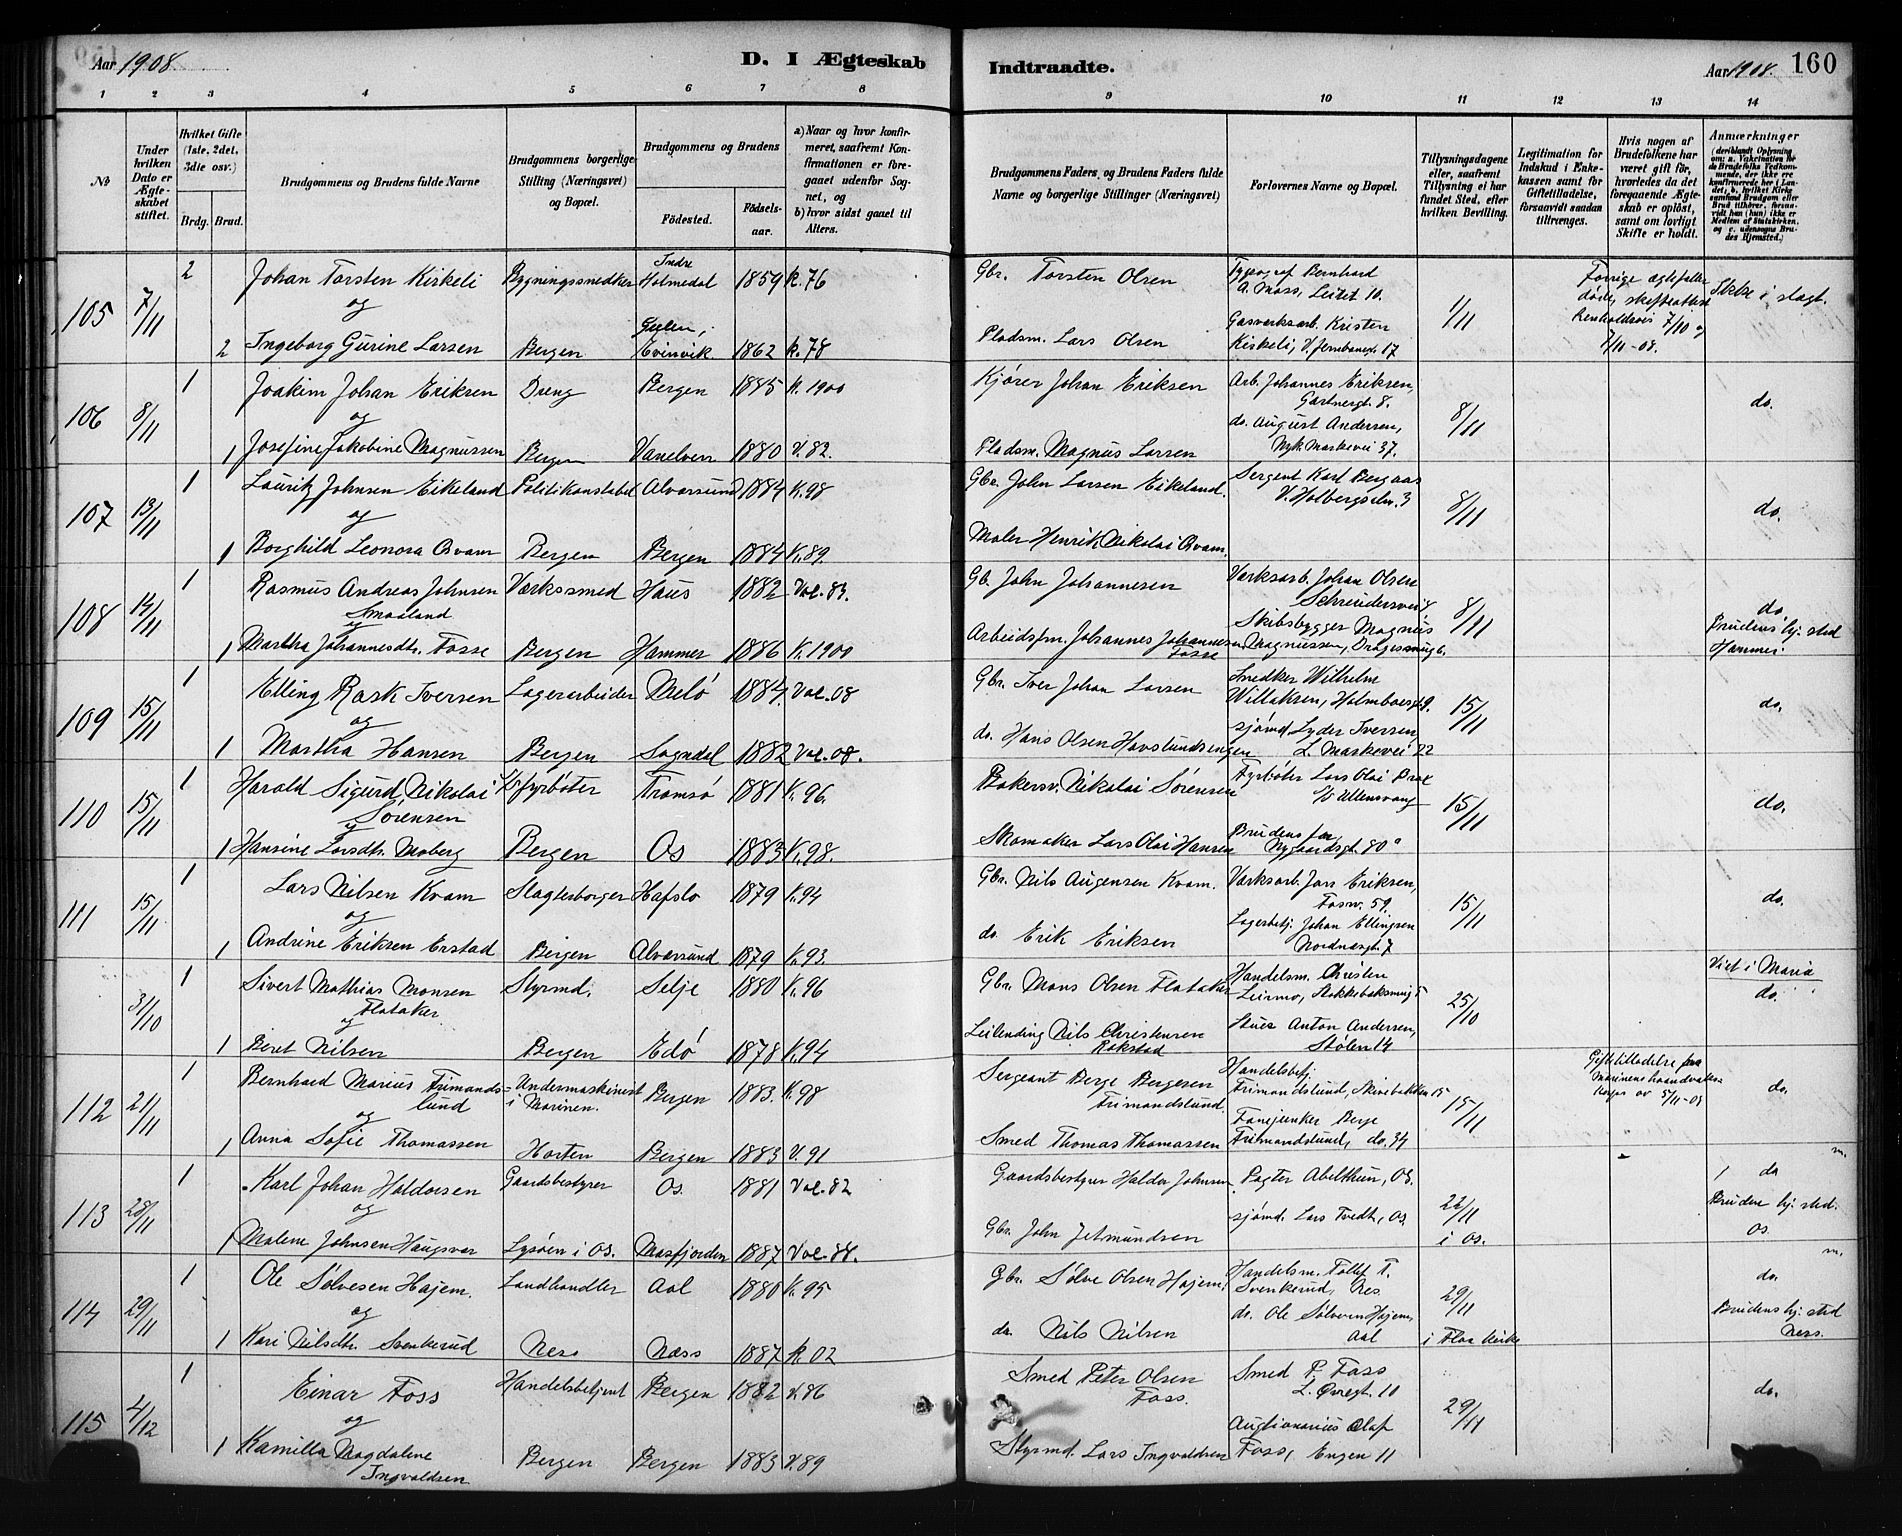 Aar 1908.
D. I Ægteskab
Indtraadte.
Aar 1908.
160
1 2 3 4 5 6 7 8
9 10 11 12 13 14
No
Under hvilken Dato er Ægteskabet stiftet.
Hvilket Gifte (1ste, 2det, 3die osv.)
Brdg. Brud.
Brudgommens og Brudens fulde Navne
Brudgommens borgerlige Stilling (Næringsvei) og Bopæl.
Brudgommens og Brudens
Fødested.
Fødselsaar.
a) Naar og hvor konfirmeret, saafremt Konfirmationen er foregaaet udenfor Sognet, og
b) hvor sidst gaaet til Alters.
Brudgommens Faders, og Brudens Faders fulde Navne og borgerlige Stillinger (Næringsvei)
Forlovernes Navne og Bopæl.
Tillysningsdagene eller, saafremt Tillysning ei har fundet Sted, efter hvilken Bevilling.
Legitimation for Indskud i Enkekassen samt for Giftetilladelse, forsaavidt saadan tiltrænges.
Hvis nogen af Brudefolkene har været gift før, hvorledes da det foregaaende Ægteskab er opløst, samt om lovligt Skifte er holdt.
Anmærkninger
105 7/11 2 Johan Torsten Kirkeli Bygningssnedker Indre Holmedal 1859 k. 76 Gbr. Torsten Olsen Typograf Bernhard A. Moss, Leitet 10. 1/11
og
2 Ingeborg Gurine Larsen Bergen Gulen, Evinvik 1862 k. 78 Pladsm. Lars Olsen Gasverksarb. Kristen Kirkeli, V. Jernbanev. 17
106 8/11 1 Joakim Johan Eriksen Dreng Bergen 1885 k. 1900 Kjører Johan Eriksen Arb. Johannes Eriksen, Gartnergt. 8. 8/11 do.
og
1 Josefine Jakobine Magnussen Bergen Vanelven 1880 V. 82. Pladsm. Magnus Larsen do. August Andersen, Nyk. Markevei 37.
107 13/11 1 Lauritz Johnsen Eikeland Politikonstabel Alversund 1884 K. 98 Gbr. John Larsen Eikeland. Sergent Karl Bergaas V. Holbergsalm. 3 8/11 do.
og
1 Borghild Leonora Qvam Bergen Bergen 1884 K. 89. Maler Henrik Nikolai Qvam.
108 14/11 1 Rasmus Andreas Johnsen Smaaland Værkssmed Haus 1882 Vac. 83. Gb. John Johannesen Værksarb. Johan Olsen 8/11 do
og
1 Martha Johannesdtr. Fosse Bergen Hammer 1886 K. 1900 Arbeidsfm. Johannes Johannesen Fosse Skibsbygger Magnus Magnussen, Brudens hj. sted Hammer
109 15/11 1 Elling Rask Iversen Lagerarbeider Melø 1884. Vac. 08 Gbr. Iver Johan Larsen Snedker Wilhelm Willaksen, Holmboesgt. 9. 15/11 do.
og
1 Martha Hansen Bergen Sogndal 1882 Vac. 08. do. Hans Olsen Havslundsengen sjømd. Lyder Iversen, L. Markevei 22
110 15/11 1 Harald Sigurd Nikolai Sørensen fyrbøter Tromsø 1881 K. 96. Bakersv. Nikolai Sørensen Fyrbøter Lars Olai 15/11 do.
og
1 Hansine Larsdtr. Moberg Bergen Os 1883 K. 98. Skomaker Lars Olai Hansen Brudens far Nygaardsgt. 80
111 15/11 1 Lars Nilsen Kvam Slagterborger Hafslo 1879 K. 94 Gbr. Nils Augensen Kvam. Værksarb. Jars Eriksen, Fosw. 59. 15/11 do.
og
1 Andrine Eriksen Erstad Bergen Alversund 1879 K. 93. do. Erik Eriksen Lagerbetj. Johan Ellingsen Nordnæsgt. 7
31/10 1 Sivert Mathias Monsen Flataker Styrmd. Selje 1880 K. 96 Gbr. Mons Olsen Flataker Handelsm. Christen Leirmo, 25/10 Viet i Maria do.
og
1 Beret Nilsen Bergen Edø 1878 K. 94 Leilending Nils Christensen Rokstad Stuer Anton Andersen, Stølen 14
112 21/11 1 Bernhard Marius Frimandslund Undermaskinist i Marinen. Bergen 1883. K. 98 Sergeant Berge Bergesen Frimandslund. Handelsbetj. Frimandslund, Skivebakken 15 15/11 Giftetilladelse fra Marinens haandværkerkorps av 5/11-08 do.
og
1 Anna Sofie Thomassen Horten Bergen 1883 V. 91 Smed Thomas Thomassen Fanejunker Berge Frimandslund, do. 34
113 28/11 1 Karl Johan Haldorsen Gaardsbestyrer Os. 1881 Vac. 82 Gaardsbestyrer Haldor Johnsen Pagter Abelthun, Os. 22/11 i Os. do
og
1 Malene Johnsen Haugsvær Lysøen i Os. Masfjorden 1887 Vac. 88. Gbr. John Jetmundsen sjømd. Lars Tvedt, Os. Brudens hj. sted. Os.
114 29/11 1 Ole Sølvesen Hajem. Landhandler Aal 1880 K. 95 Gbr. Sølve Olsen Hajem, Handelsm. Tollef T. Svenkerud, Nes 29/11 do.
og
1 Kari Nilsdtr. Svenkerud Nes Næss 1887 k. 02 do. Nils Nilsen do. Ole Sølvesen Hajem, Aal i Flaa kirke Brudens hj. sted Ness.
115 4/12 1 Einar Foss Handelsbetjent Bergen 1882 V. 86 Smed Peter Olsen Foss. Smed P. Foss L. Øvregt. 10 29/11 do.
og
1 Kamilla Magdalene Ingvaldsen Bergen Bergen 1883 V. 89 Styrmd. Lars Ingvaldsen Auctionarius Olaf Foss, Engen 11